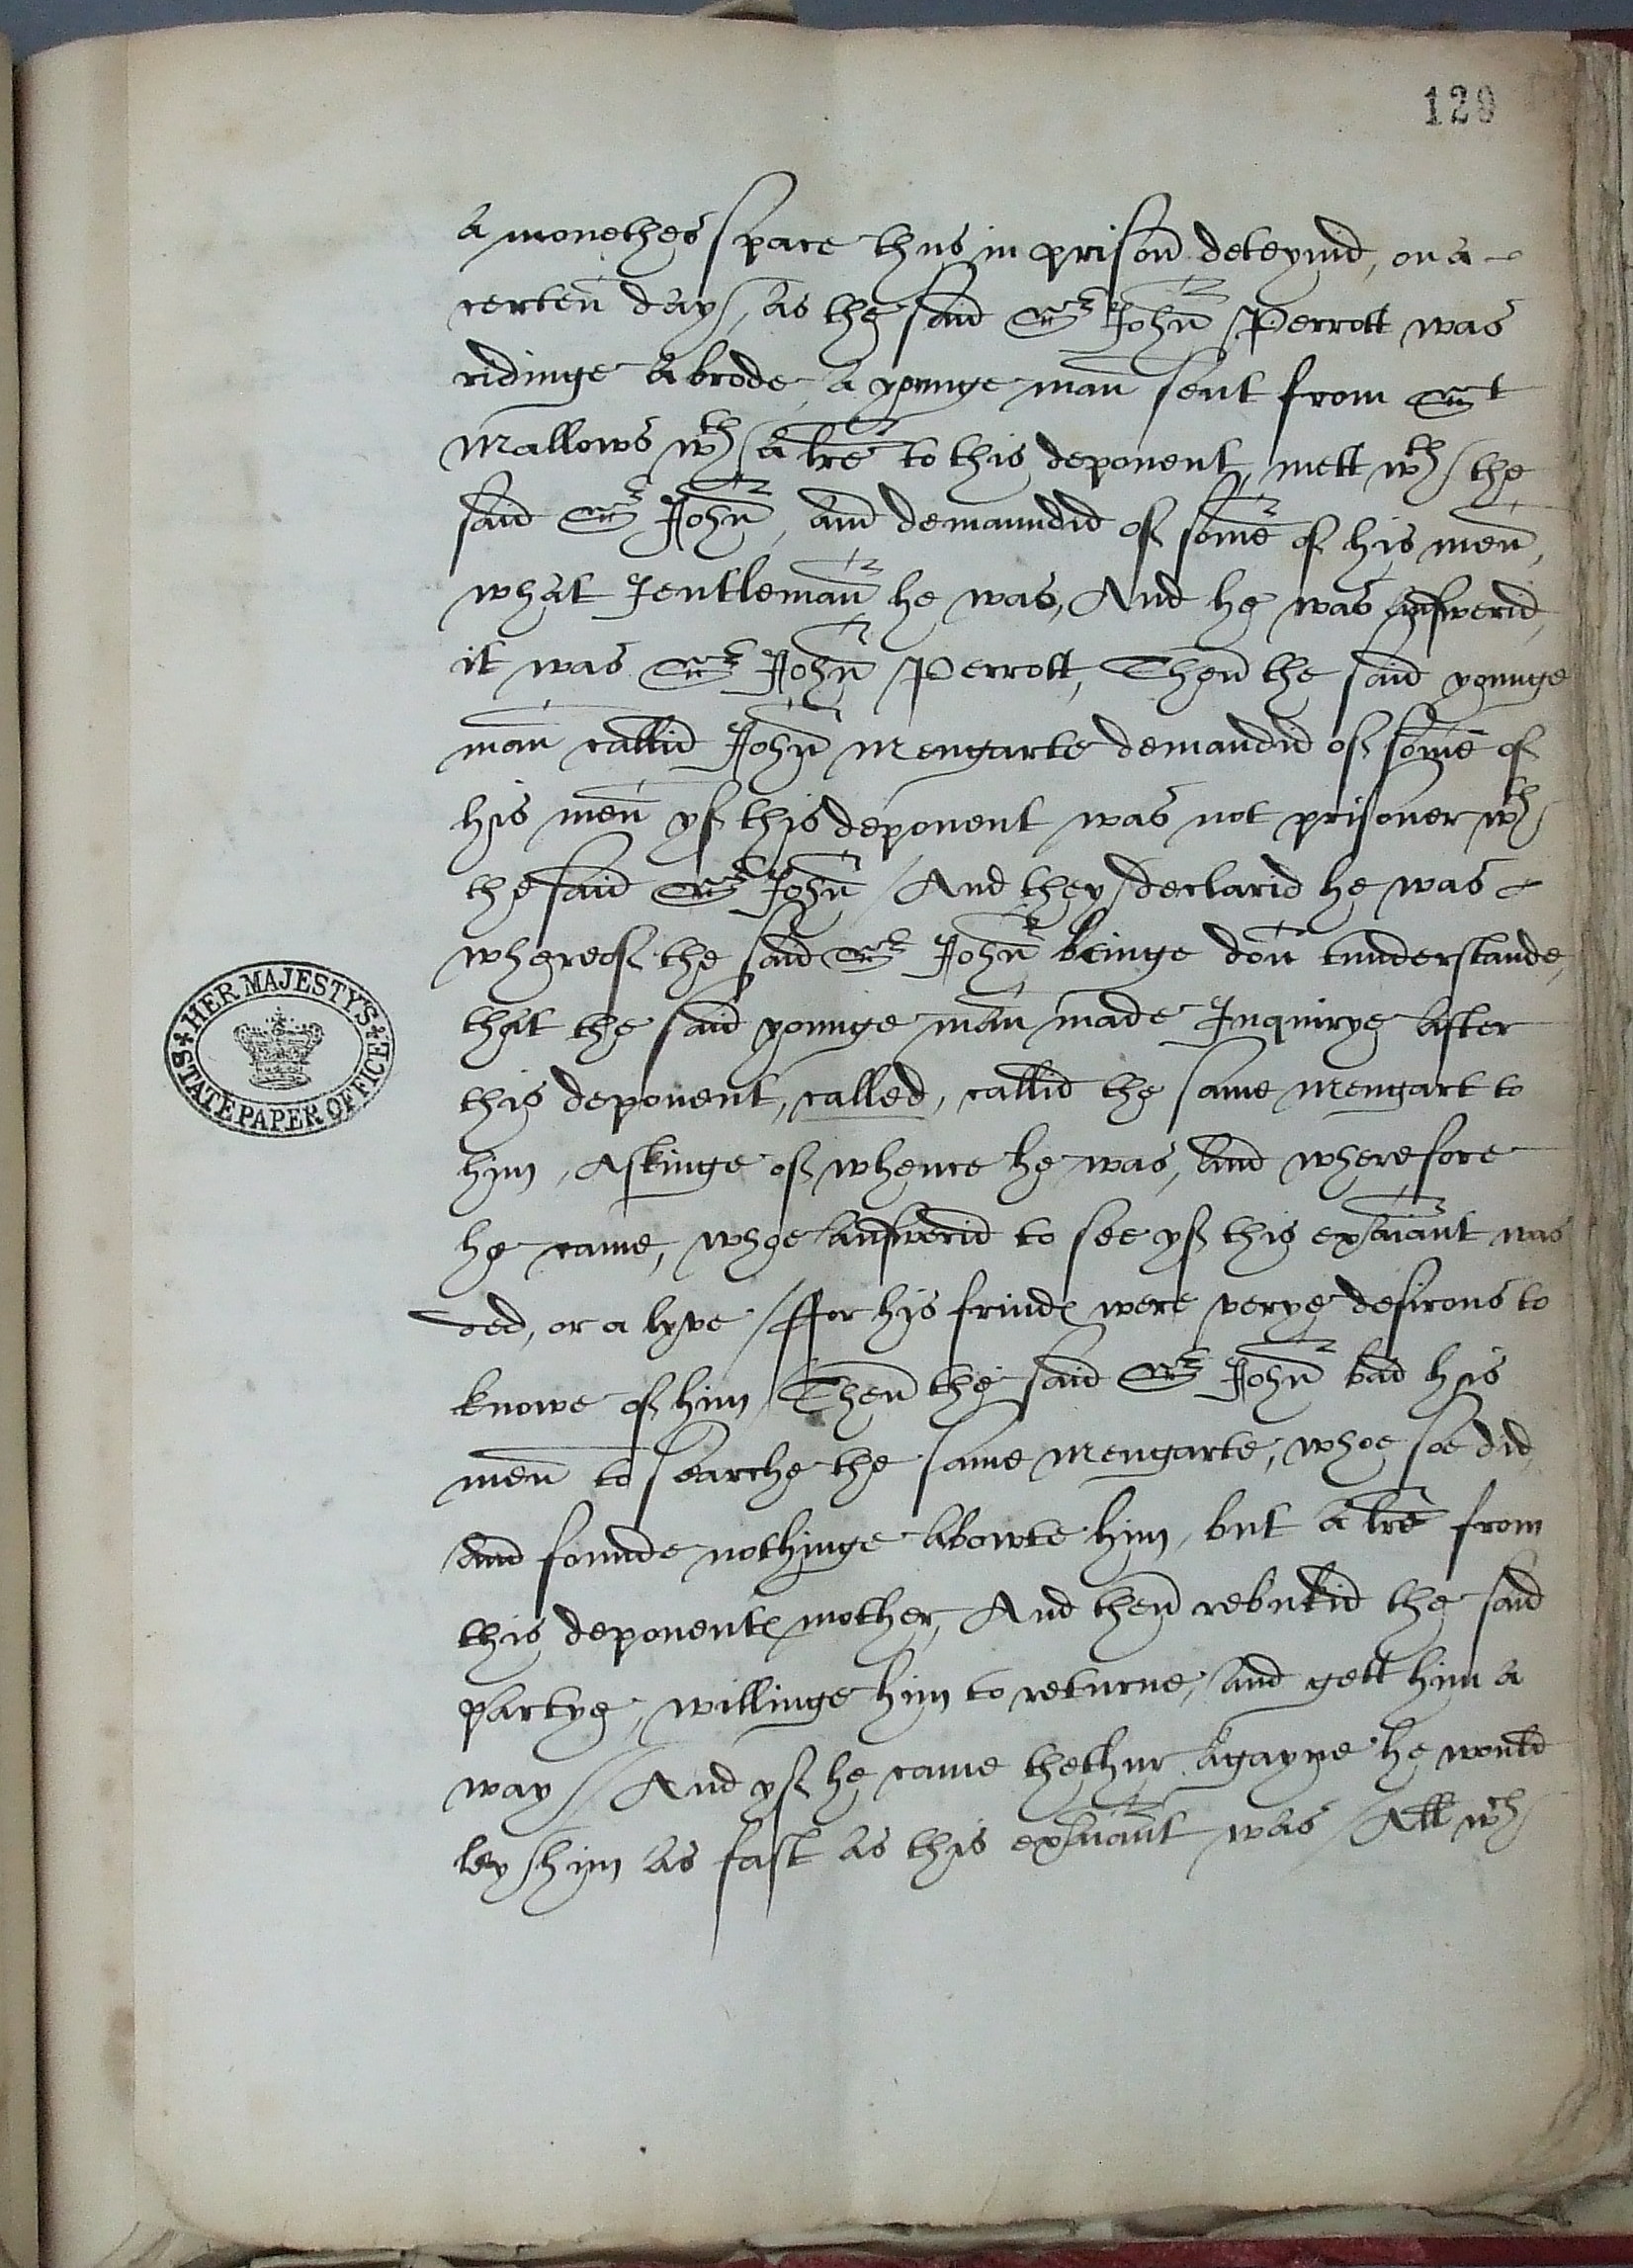 129
a monethes space thus in prison deteynid, on a
certen day, as the said Sr John Perrott was
ridinge abrode, a younge man sent from St
Mallows wth a lre to this deponent, mett wth the
said Sr John, and demaundid of some of his men,
what Jentleman he was, And he was answerid,
it was Sr John Perrott, Then the said younge
man callid John Mengarte demandid of some of
his men yf this deponent was not prisoner wth
the said Sr John / And they declarid he was
whereof the said Sr John beinge don tunderstande,
that the said younge man made Inquirye after
this deponent, called, callid the same Mengart to
him, Askinge of whence he was, and wherefore
he came, whoe answerid to see yf this exaiant was
ded, or a lyve / ffor his frindes were verye desirous to
knowe of him / Then the said Sr John bad his
men to searche the same Mengarte, whoe soe did,
and founde nothinge abowte him, but a lre from
this deponentes mother, And then rebukid the said
partye, willinge him to returne, and gett him a
way / And yf he came thethur agayne he would
ley him as fast as this exaiant was / All wch
HER MAJESTY'S STATE PAPER OFFICE